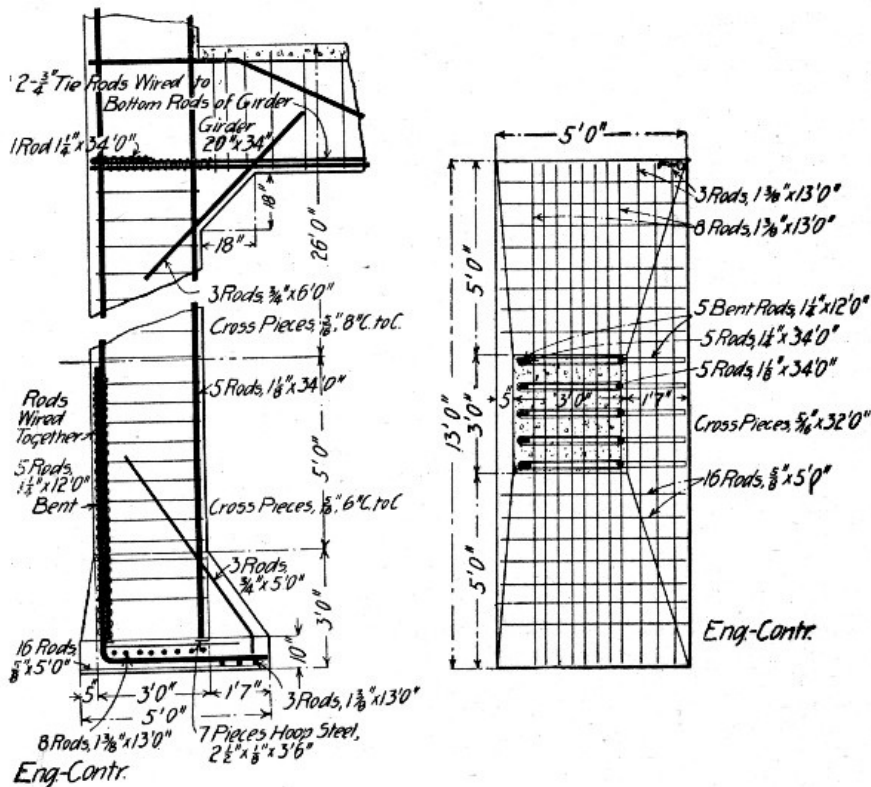 2-3/4" Tie Rods Wired to
Bottom Rods of Girder
Girder
20"x34"
1 Rod 1 1/4"x34'0"
18"
18"
26'0"
3 Rods, 3/4"x6'0"
Cross Pieces, 5/16", 8"C. to C.
Rods
Wired
Together
5 Rods, 1 1/8"x34'0"
5 Rods,
1 1/4"x12'0"
Bent
5'0"
Cross Pieces, 5/16", 6"C. to C
3 Rods,
3/4"x5'0"
3'0"
10"
16 Rods,
5/8"x5'0"
5"
3'0"
1'7"
3 Rods, 1 3/8"x13'0"
5'0"
8 Rods, 1 3/8"x13'0"
7 Pieces Hoop Steel,
2 1/2"x1/8"x3'6"
Eng-Contr.
5'0"
3 Rods, 1 3/8"x13'0"
8 Rods, 1 3/8"x13'0"
5'0"
5 Bent Rods, 1 1/4"x12'0"
5 Rods, 1 1/4"x34'0"
5 Rods, 1 1/8"x34'0"
5"
3'0"
1'7"
13'0"
3'0"
Cross Pieces, 5/16"x32'0"
16 Rods, 5/8"x5'0"
5'0"
Eng-Contr.